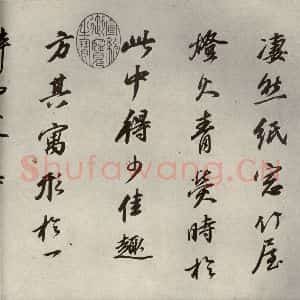 凄然纸窗竹屋
燈火青熒時於
此中得少佳趣
方其寓形於一
Shufawang.Cn